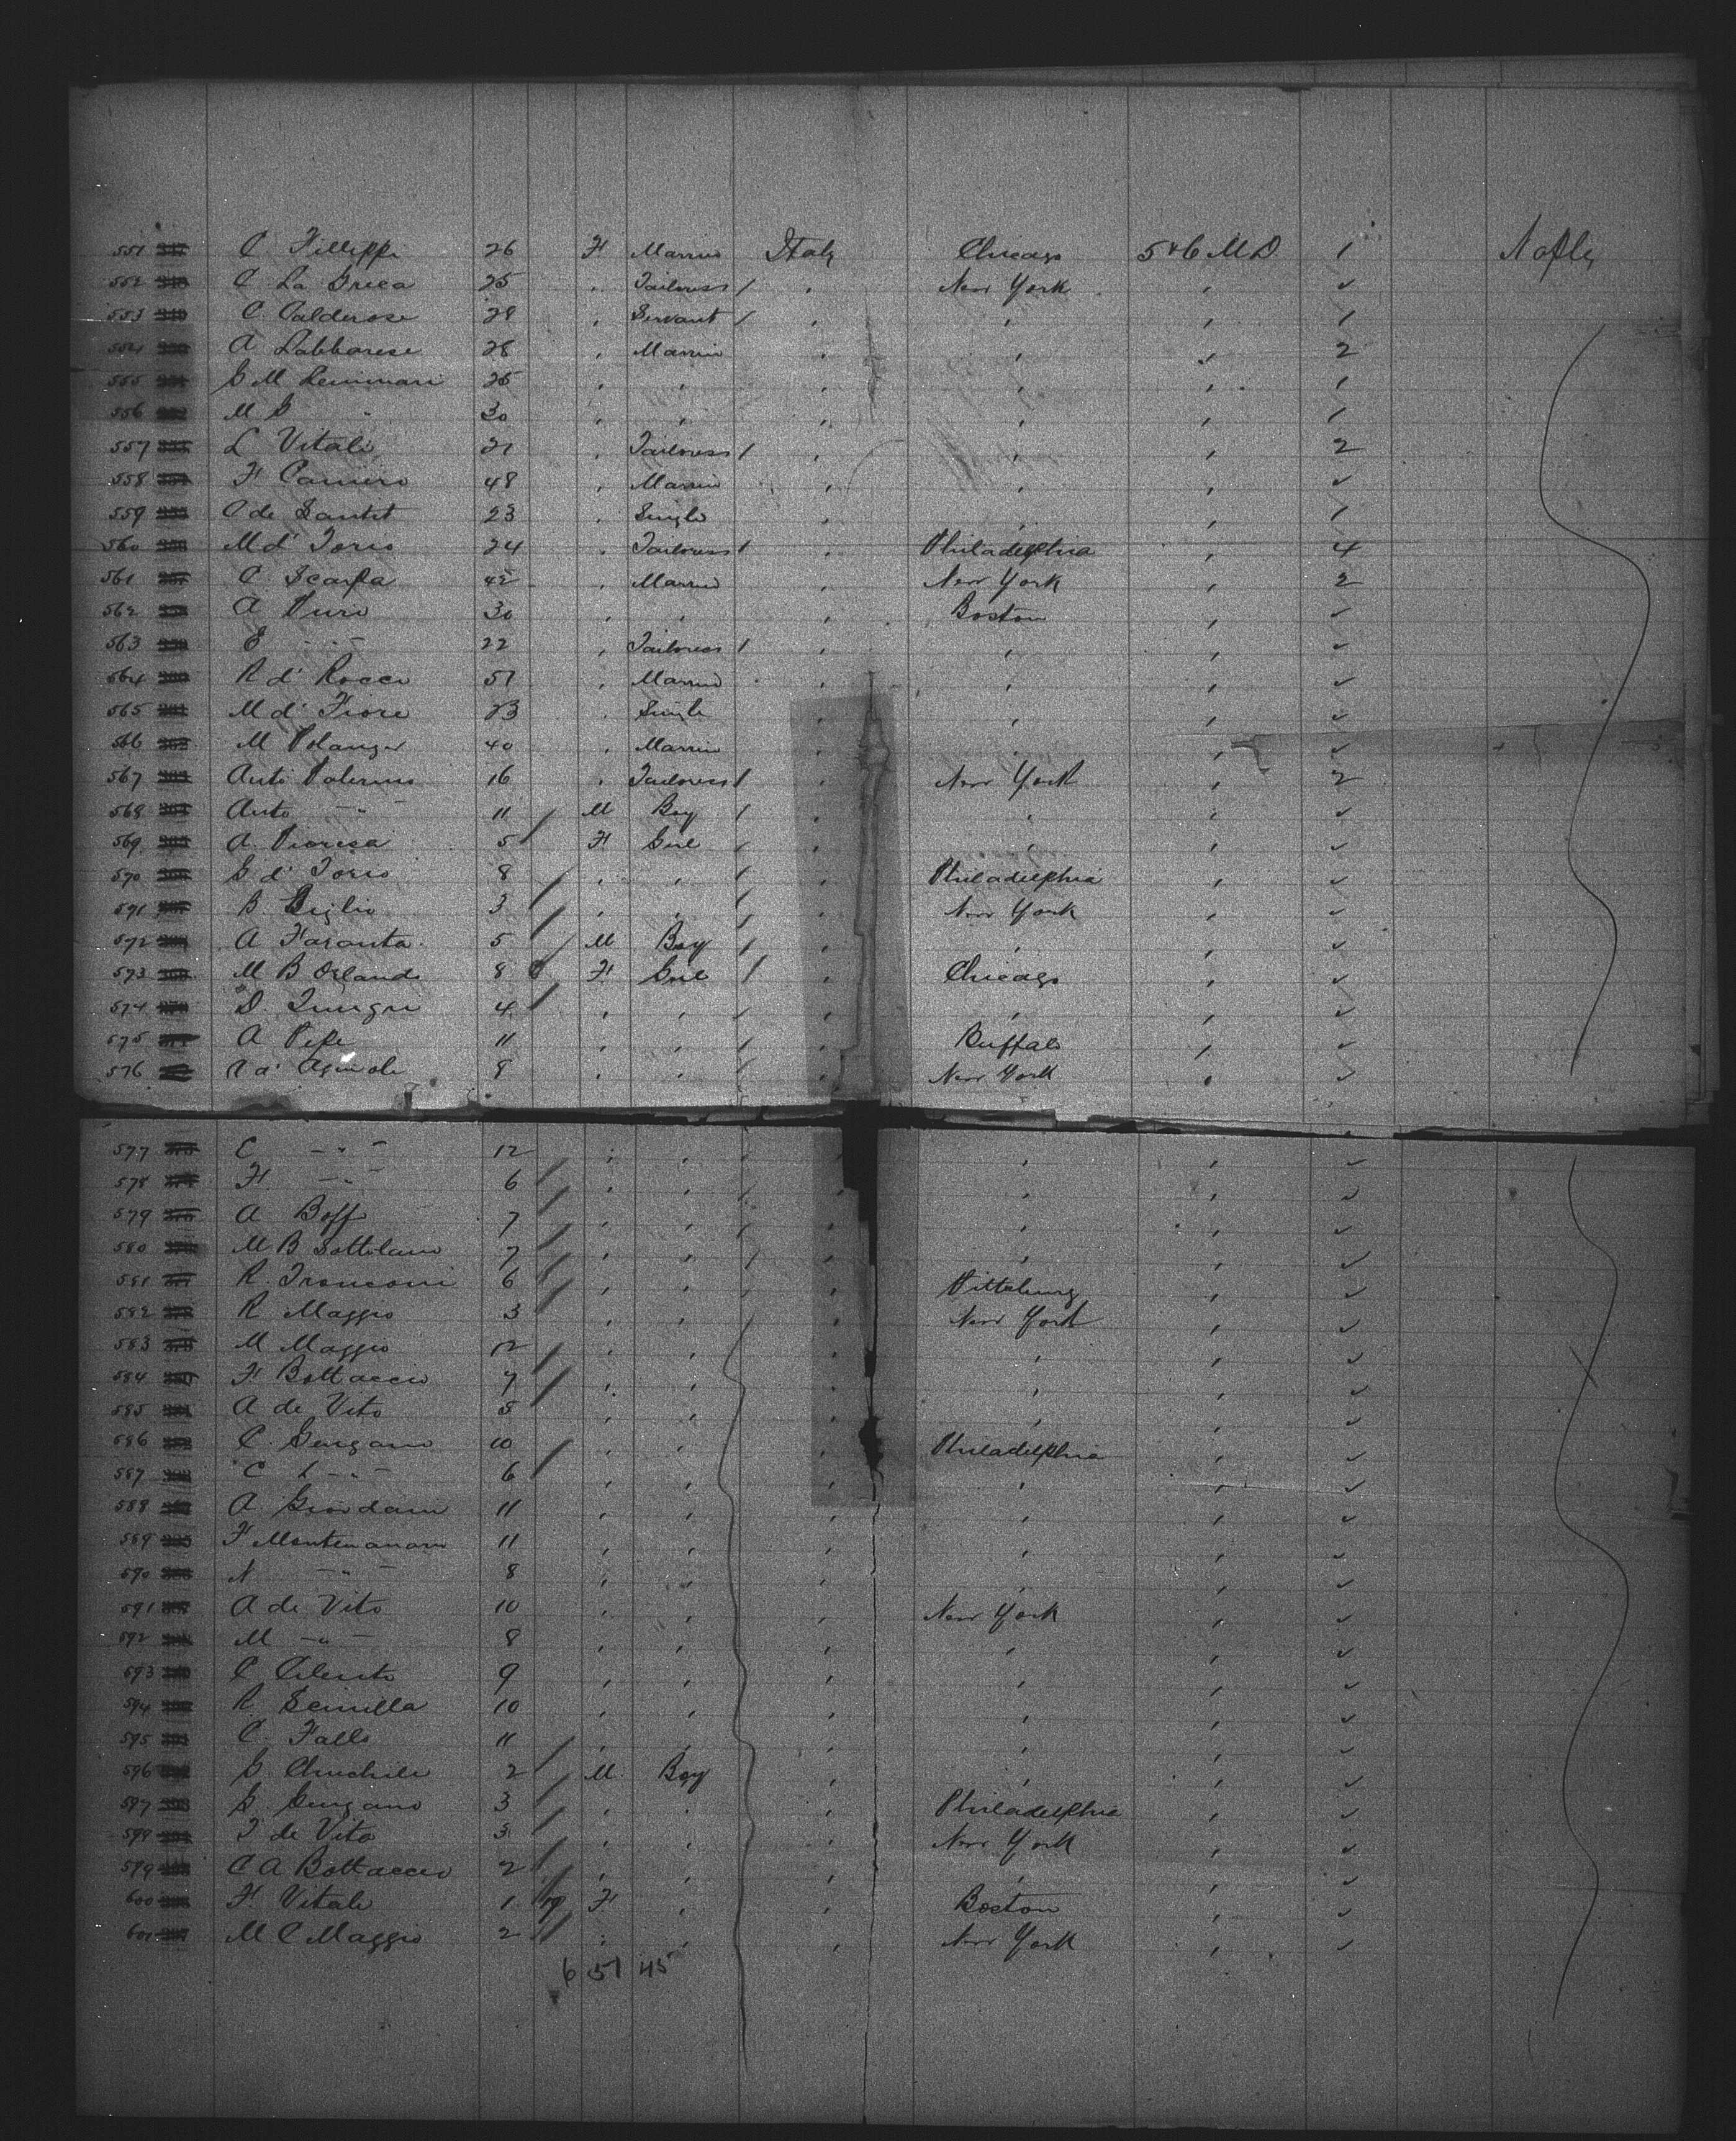 551 C Fillippi 26 F Married Italy Chicago 5 & 6 M D 1 Naples
552 C La Greca 25 , Tailoress / , New York , ✓
553 C Calderose 28 , Servant / , , , 1
554 A Labbarese 28 , Married , , , 2
555 G M 25 , , , , , 1
556 M G " 30 , , , , , 1
557 L Vitale 21 , Tailoress / , , , 2
558 F 48 , Married , , , ✓
559 C de 23 , Single , , , 1
560 M d' Torio 24 , Tailoress / , Philadelphia , 4
561 C Scarpa 42 , Married , New York , 2
562 A Puro 30 , , , Boston , ✓
563 E - " - 22 , Tailoress / , , , ✓
564 R d' Rocco 51 , Married , , , ✓
565 M d' Fiore 23 , Single , , , ✓
566 M 40 , Married , , , ✓
567 Anto Palermo 16 , Tailoress / , New York , 2
568 Anto - " - 11 / M Boy / , , , ✓
569 A. 5 / F Girl / , , , ✓
570 G d' Torio 8 , , / , Philadelphia , ✓
571 B Biglio 3 / , , / , New York , ✓
572 A Faranta 5 / M Boy / , , , ✓
573 M B Orlando 8 F Girl / , Chicago , ✓
574 D 4 / , , / , , , ✓
575 A Pepe 11 , , / , Buffalo , ✓
576 8 , , / , New York , ✓
577 C - " - 12 , , , , , , ✓
578 F - " - 6 / , , / , , , ✓
579 A Boffo 7 / , , / , , , ✓
580 M B Sottolano 7 / , , / , , , ✓
581 R. Tronconi 6 / , , , , Pittsburg , ✓
582 R Maggio 3 / , , , New York , ✓
583 M Maggio 12 , , , , , ✓
584 F Bottaccio 7 / , , , , , ✓
585 A de Vito 5 / , , , , , ✓
586 C. Gengano 10 , , , Philadelphia , ✓
587 C L - " - 6 / , , , , , ✓
588 A Giordano 11 , , , , , ✓
589 F 11 , , , , , ✓
590 N - " - 8 , , , , , ✓
591 A de Vito 10 , , , New York , ✓
592 M - " - 8 , , , , , ✓
593 C Cilento 9 , , , , , ✓
594 R Scinilla 10 , , , , , ✓
595 C. Fallo 11 , , , , , ✓
596 G 2 / M Boy , , , ✓
597 G Gengano 3 / , , , Philadelphia , ✓
598 T de Vito 3 / , , , New York , ✓
599 C A Bottaccio 2 / , , , , , ✓
600 F. Vitale 1 F , , Boston , ✓
601 M C Maggio 2 / , , , New York , ✓
6 51 45